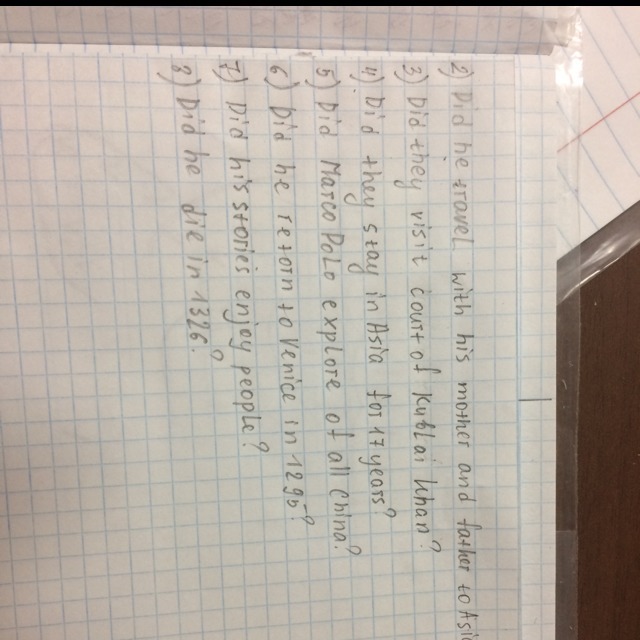 2) Did he travel with his mother and father to Asia
3) Did they visit court of Kublai Khan?
4) Did they stay in Asia for 17 years?
5) Did Marco Polo explore of all China?
6) Did he retorn to Venice in 1295?
7) Did his stories enjoy people?
8) Did he die in 1326?